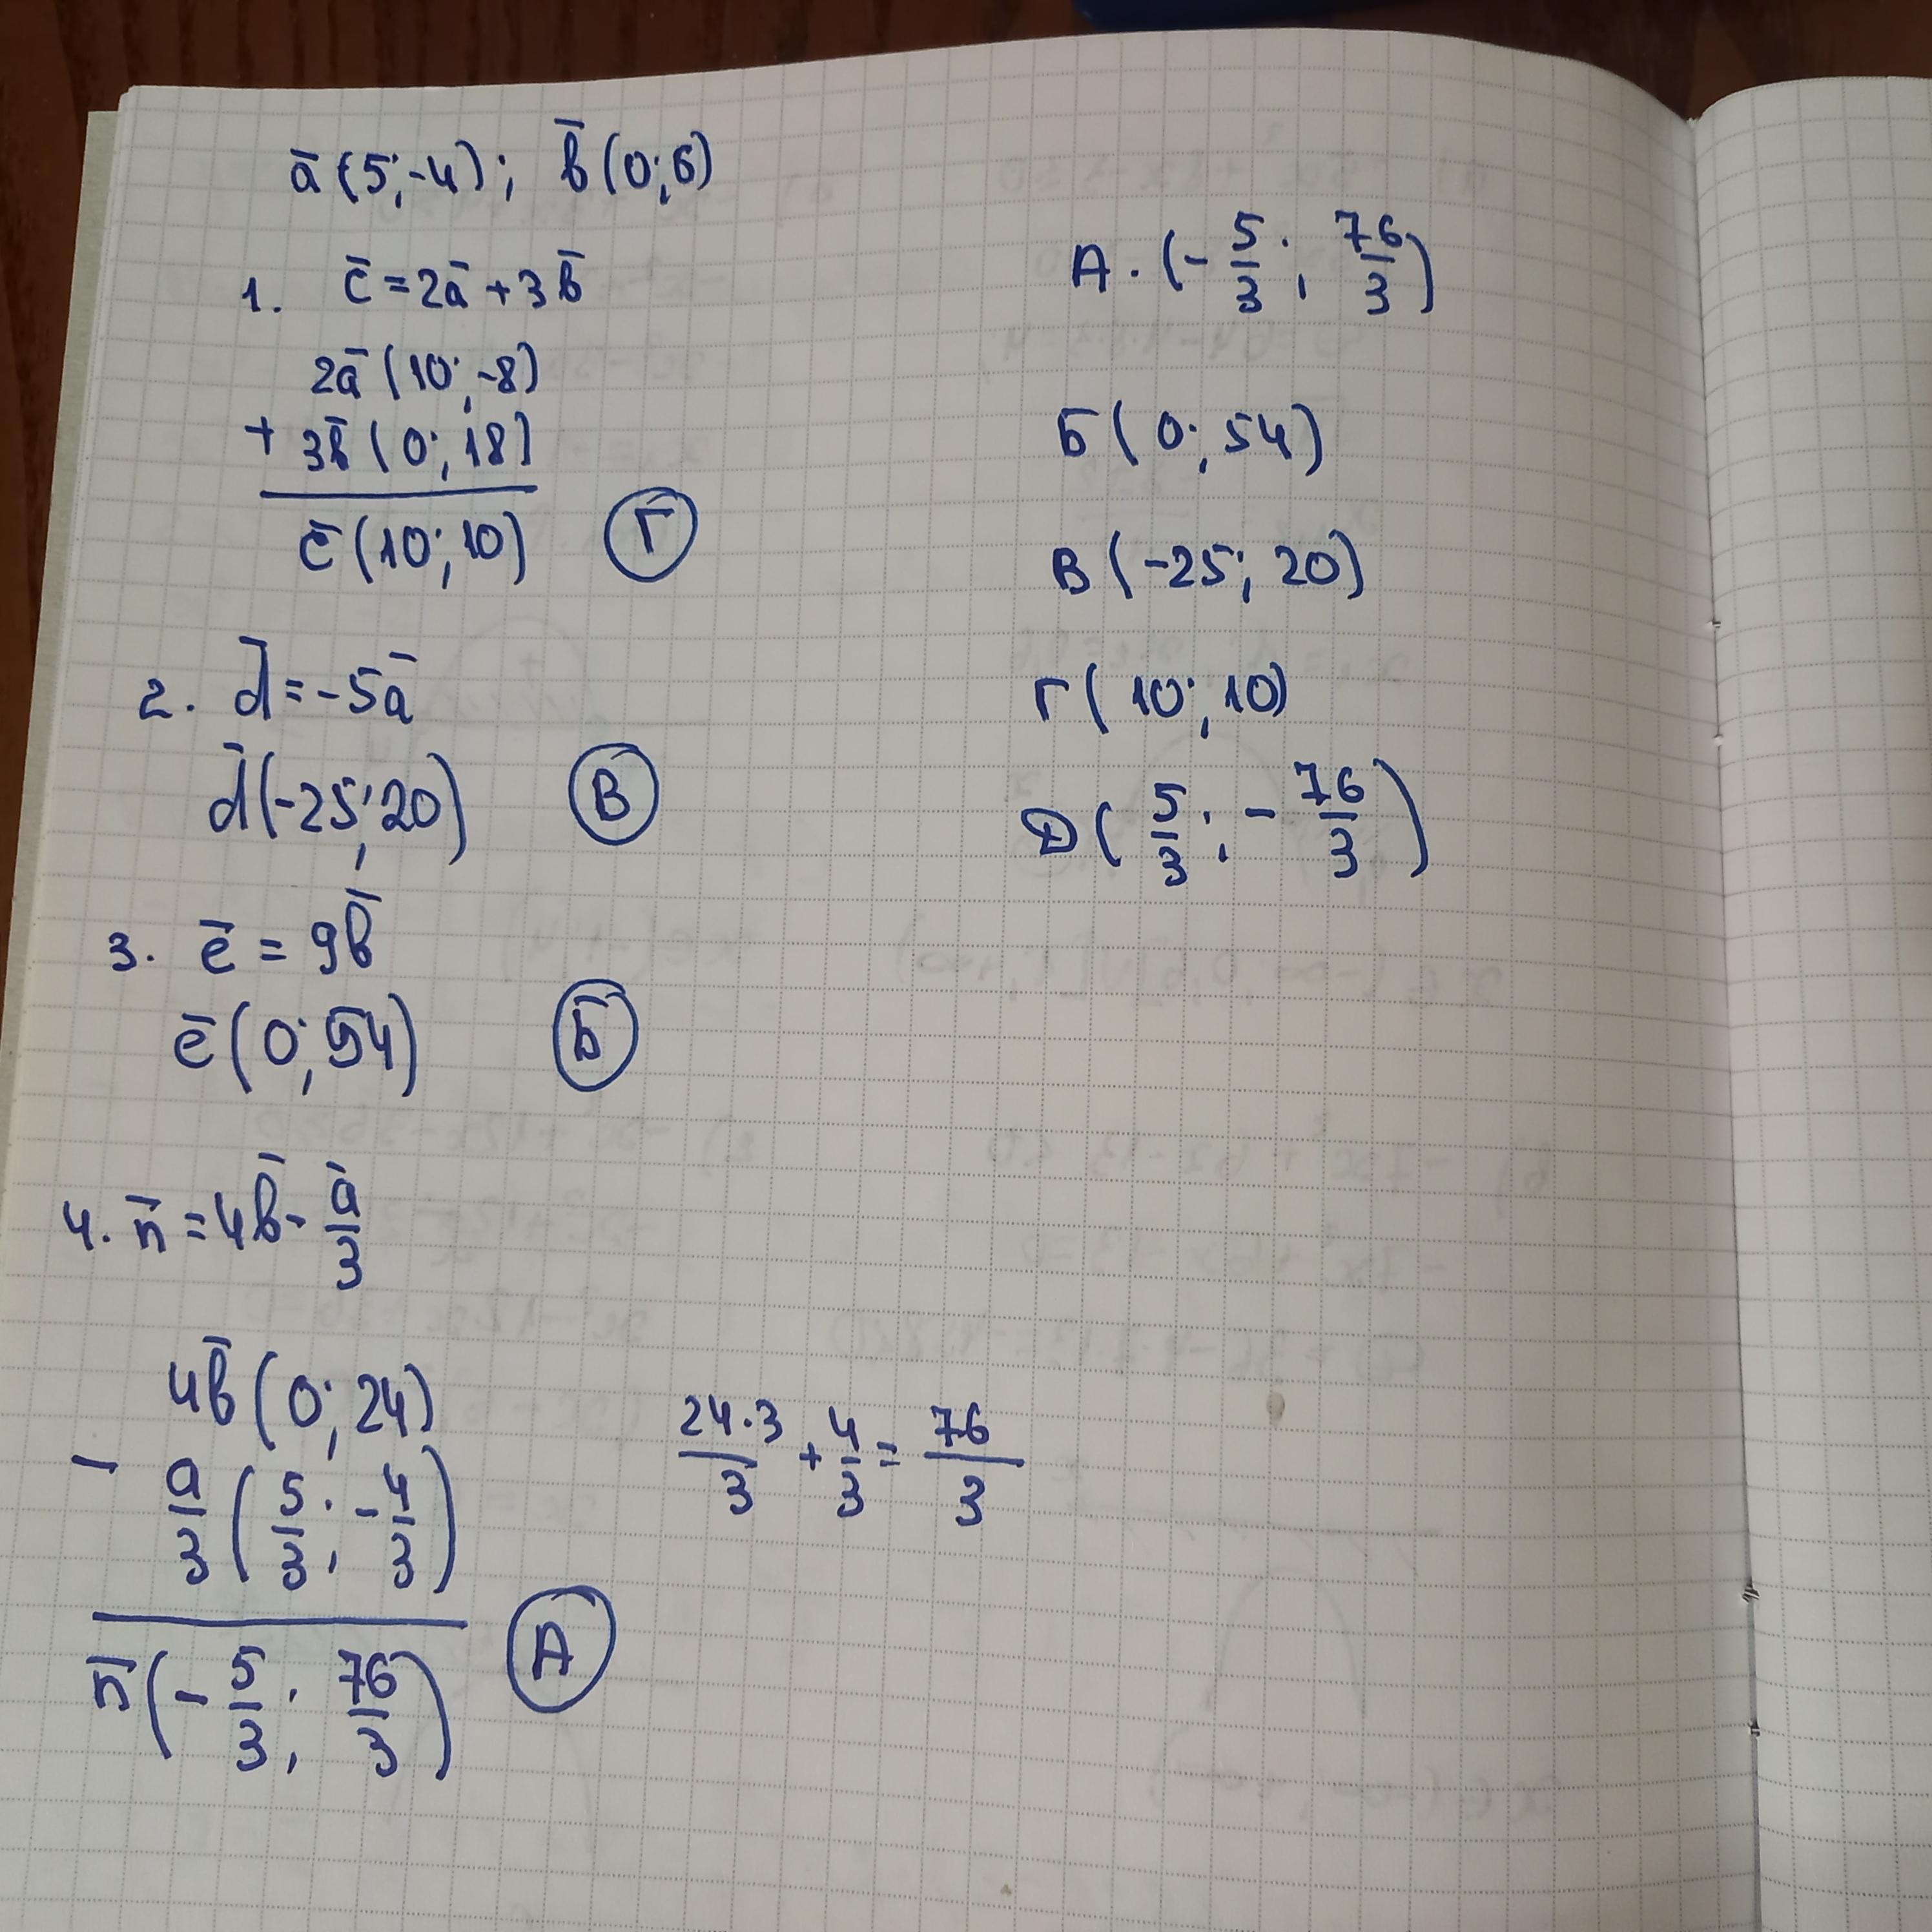 ā (5; -4); b̄ (0; 6)
1. c̄ = 2ā + 3b̄
2ā (10; -8)
+ 3b̄ (0; 18)
c̄ (10; 10) Г
2. d̄ = -5ā
d̄ (-25; 20) В
3. ē = 9b̄
ē (0; 54) Б
4. n̄ = 4b̄ - ā/3
4b̄ (0; 24)
- a/3 (5/3; -4/3)
n̄ (-5/3; 76/3) А
24·3/3 + 4/3 = 76/3
А. (-5/3; 76/3)
Б (0; 54)
В (-25; 20)
Г (10; 10)
D (5/3; -76/3)